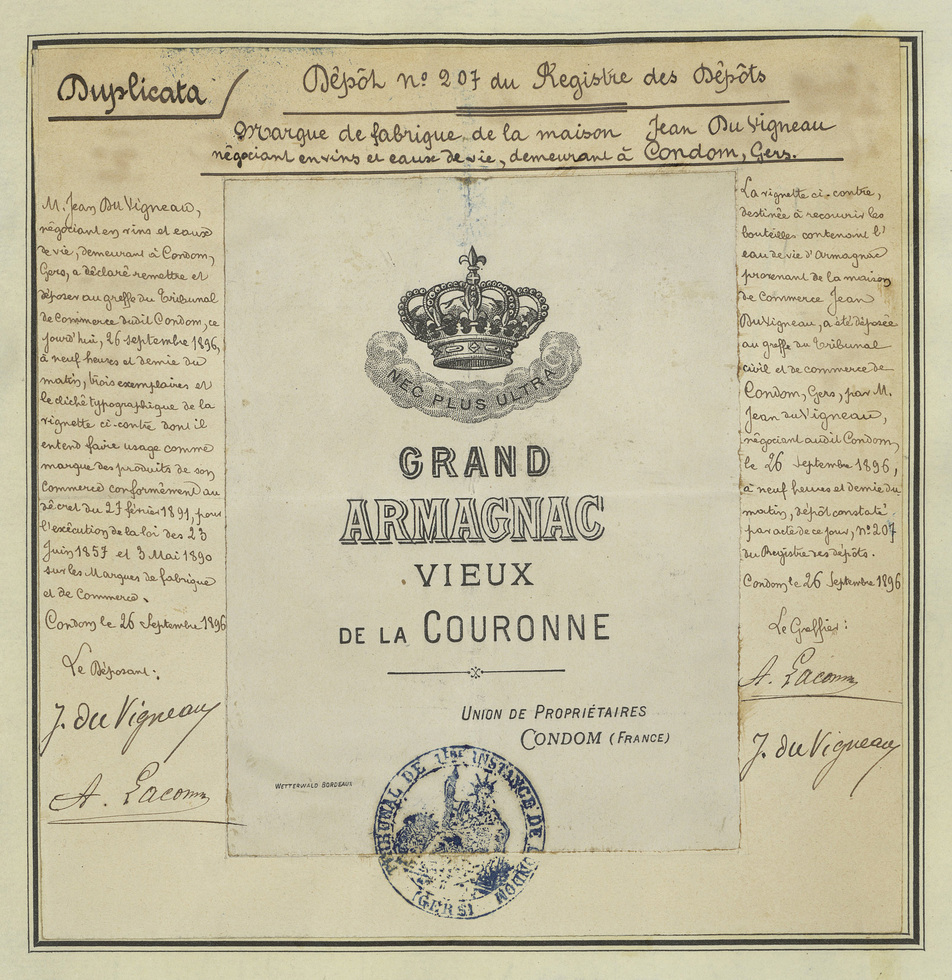 Duplicata
Dépôt nº 207 du Registre des Dépôts
Marque de fabrique de la maison Jean DuVigneau
négociant en vins et eaux de vie, demeurant à Condom, Gers.
M. Jean DuVigneau,
négociant en vins et eaux
de vie, demeurant à Condom,
Gers, a déclaré remettre et
déposer au greffe du Tribunal
de Commerce dudit Condom, ce
jourd'hui, 26 septembre 1896,
à neuf heures et demie du
matin, trois exemplaires et
le cliché typographique de la
vignette ci-contre dont il
entend faire usage comme
marque des produits de son
Commerce conformément au
décret du 27 février 1891, pour
l'exécution de la loi des 23
Juin 1857 et 3 Mai 1890
sur les Marques de fabrique
et de Commerce.
Condom le 26 Septembre 1896
Le Déposant:
J. du Vigneau
A. Lacomm
NEC PLUS ULTRA
GRAND
ARMAGNAC
VIEUX
DE LA COURONNE
UNION DE PROPRIÉTAIRES
CONDOM (FRANCE)
WETTERWALD-BORDEAUX
TRIBUNAL DE 1ÈRE INSTANCE DE CONDOM
(GERS)
La vignette ci-contre,
destinée à recouvrir les
bouteilles contenant l'
eau de vie d'Armagnac
provenant de la maison
de Commerce Jean
DuVigneau, a été déposée
au greffe du Tribunal
civil et de commerce de
Condom, Gers, par M.
Jean du Vigneau,
négociant audit Condom,
le 26 Septembre 1896,
à neuf heures et demie du
matin, dépôt constaté
par acte de ce jour, Nº 207
du Registre des dépôts.
Condom le 26 Septembre 1896
Le Greffier:
A. Lacomm
J. du Vigneau